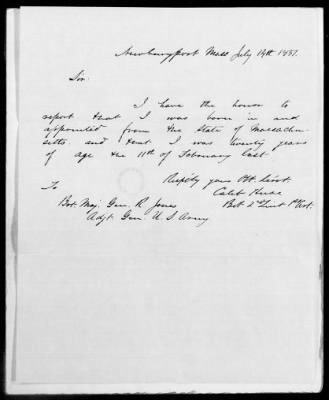 Newburyport Mass July 19th 1851.
Sir:
I have the honor to
report that I was born in and
appointed from the State of Massachu-
setts and that I was twenty years
of age the 11th of February last.
Respty your Obt. Servt.
Caleb Huse
Bvt 2d Lieut 1st Art.
To
Bvt. Maj. Gen. R. Jones
Adjt. Gen. U. S. Army